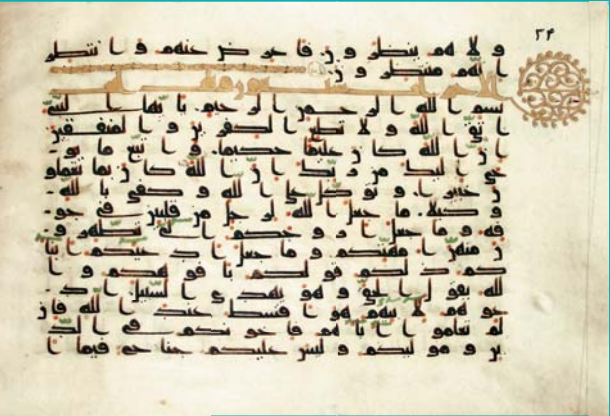 و لا هم ينظرون فاعرض عنهم و انتظر
انهم منتظرون
بسم الله الرحمن الرحيم يا يها النبي
اتق الله و لا تطع الكفرين و المنفقين
ان الله كان عليما حكيما و اتبع ما يو
حى اليك من ربك ان الله كان بما تعملو
ن خبيرا و توكل على الله و كفى بالله
وكيلا ما جعل الله لرجل من قلبين في جو
فه و ما جعل ازوجكم الى تظهرو
ن منهن امهتكم و ما جعل ادعياكم ابنا
كم ذلكم قولكم بافوهكم و ا
لله يقول الحق و هو يهدي السبيل اد
عوهم لابائهم هو اقسط عند الله فان
لم تعلموا اباهم فاخونكم في الد
ين و موليكم و ليس عليكم جناح فيما ا